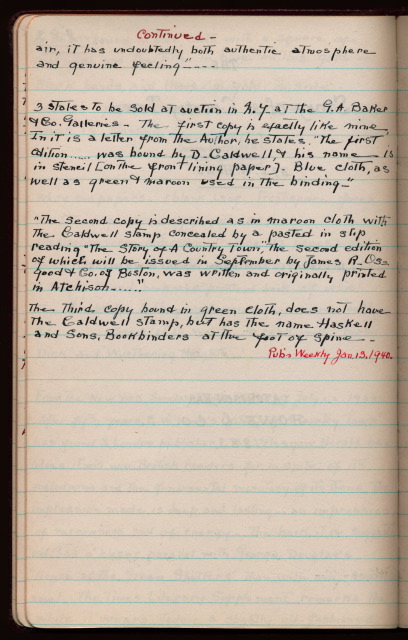 Continued -
air, it has undoubtedly both authentic atmosphere
and genuine feeling"----
3 states to be sold at auction in N.Y. at the G.A. Baker
& Co. Galleries - The first copy is exactly like mine
In it is a letter from the Author, he states, "The first
edition..... was bound by D. Caldwell, & his name is
in stencil [on the front lining paper]. Blue cloth, as
well as green & maroon used in the binding-"
"The second copy is described as in maroon cloth with
the Caldwell stamp concealed by a pasted in slip
reading "The Story of A Country Town," the second edition
of which will be issued in September by James R. Os=
good & Co. of Boston, was written and originally printed
in Atchison....."
The Third copy bound in green cloth, does not have
the Caldwell stamp, but has the name Haskell
and Sons, Bookbinders at the foot of spine -
Pub's Weekly Jan. 13, 1940.